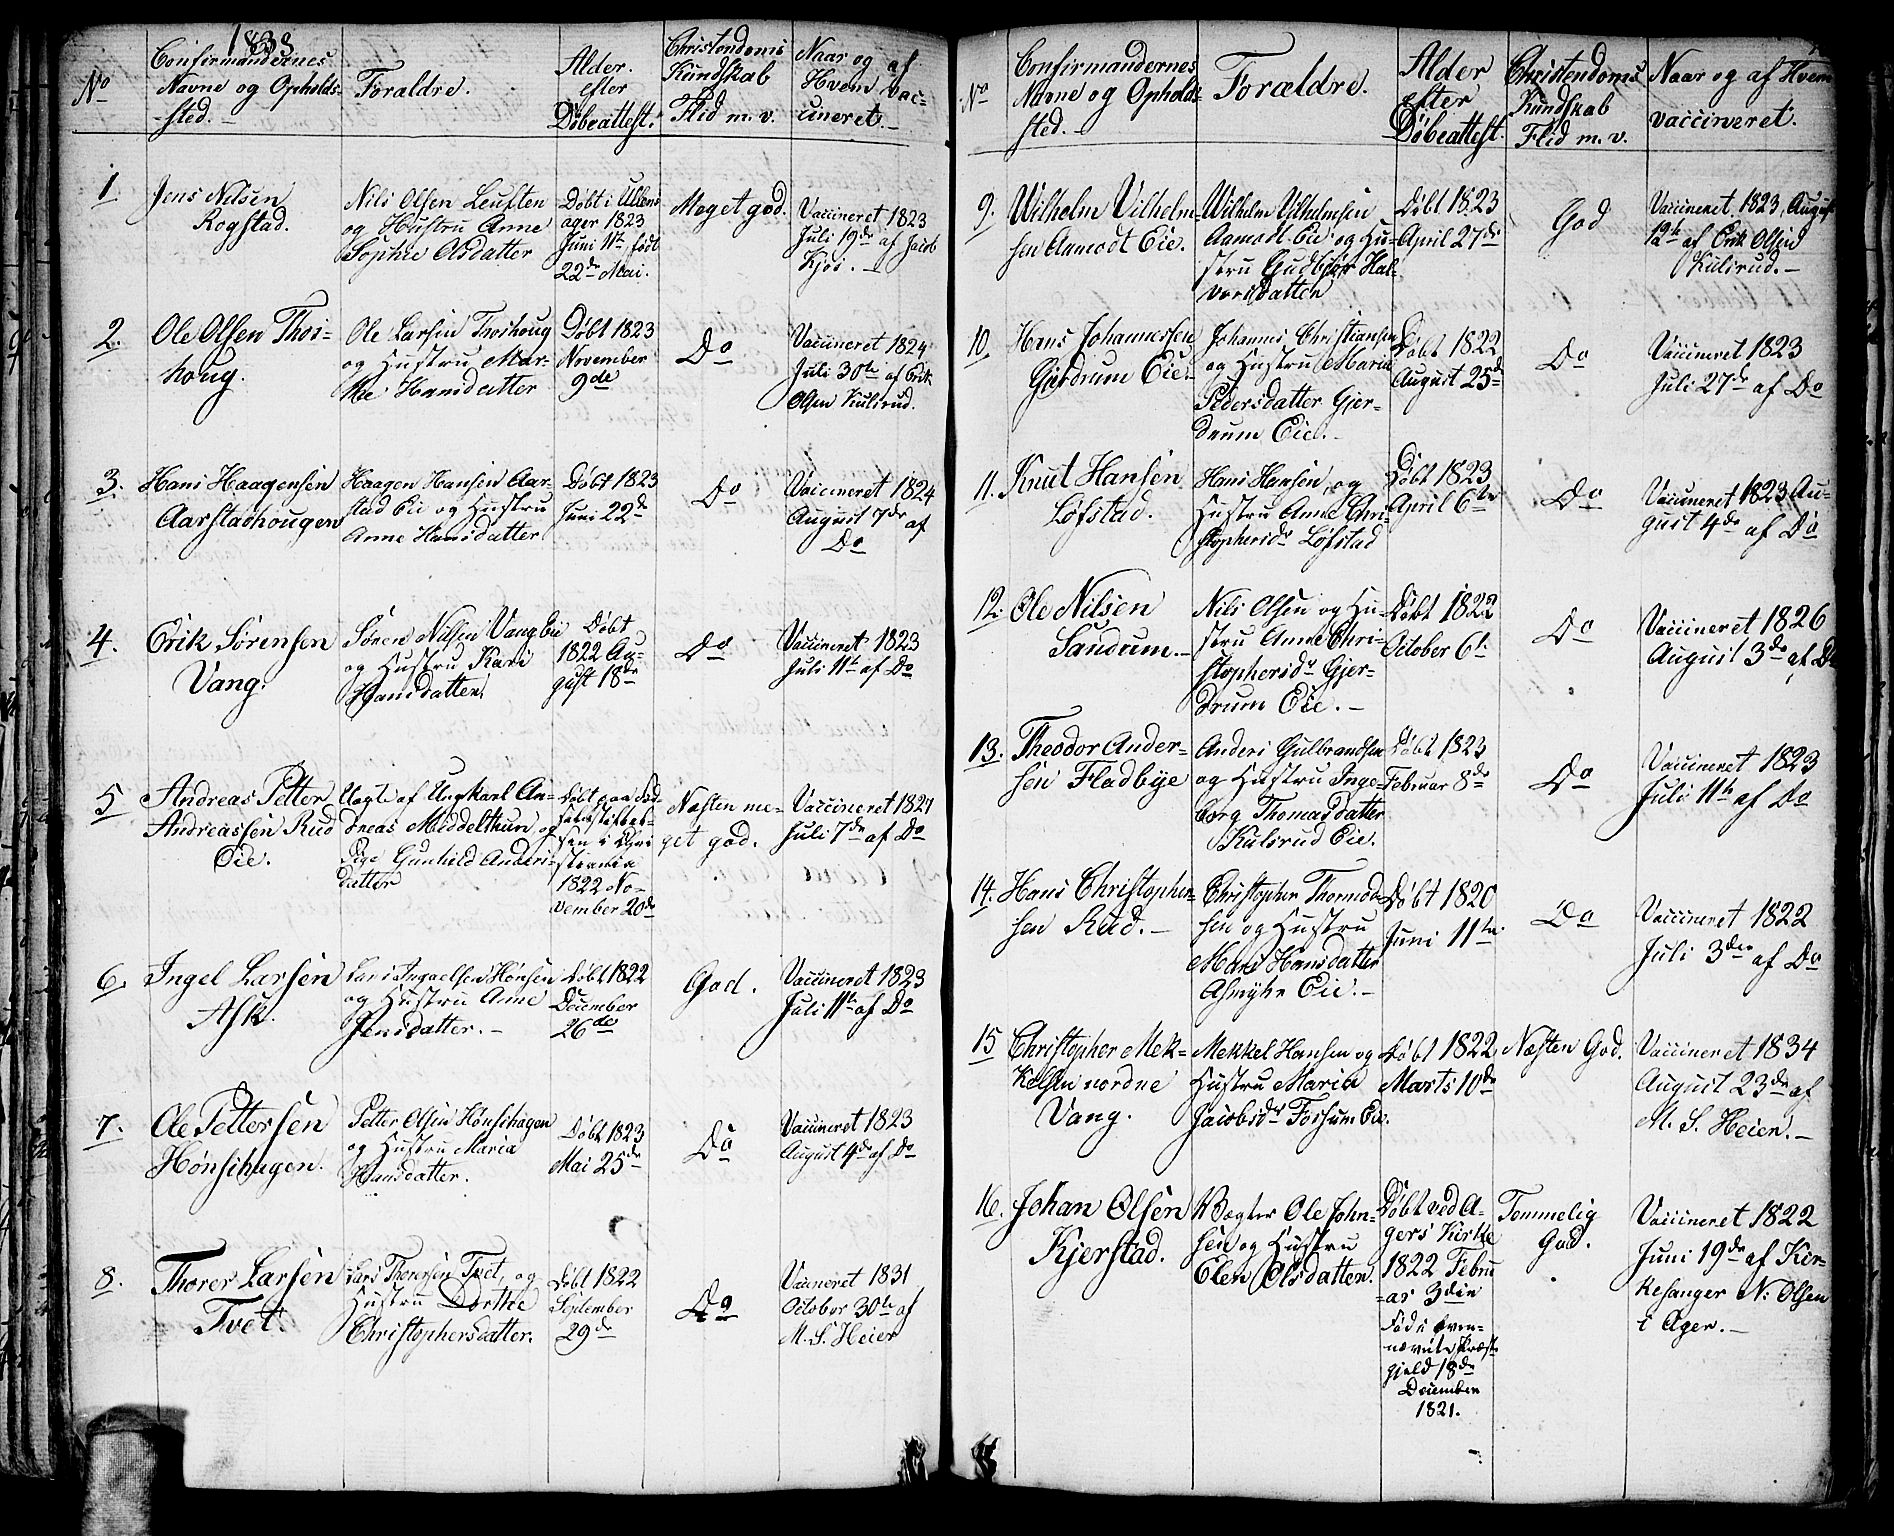 1838
No
Confirmandernes
Navne og Opholds-
sted.
Forældre.
Alder.
efter
Døbeattest.
Christendoms
Kundskab
Flid m. v.
Naar og af
Hvem vac-
cineret.
1
Jens Nilsen
Rogstad.
Nils Olsen
og Hustru Anne
Sophie Olsdatter
Døbt i Ullens
ager 1823
Juni 11te, født
22de Mai.
Meget god.
Vaccineret 1823
Juli 19de af Jacob
Kjøs.
2.
Ole Olsen Thois-
houg.
Ole Larsen Thoishoug
og Hustru Mar-
the Hansdatter
Døbt 1823
November
9de
Do
Vaccineret 1824
Juli 30te af Erik
Olsen Kulsrud.
3.
Hans Haagensen
Aarstadhougen
Haagen Hansen Aar-
stad Eie og Hustru
Anne Hansdatter
Døbt 1823
Juni 22de
Do
Vaccineret 1824
August 7de af
Do
4.
Erik Sørensen
Vang.
Sören Nilsen Vang Eie
og Hustru Kari
Hansdatter.
Døbt
1822 Au-
gust 18de
Do
Vaccineret 1823
Juli 11te af Do
5
Andreas Petter
Andreassen Rud
Eie.
Uægte af Ungkarl An-
dreas Middelthun, og
Pige Gunhild Anders-
datter
Døbt paa Fød-
selsstiftel-
sen i Chri
stiania
1822 No-
vember 20de
Næsten me-
get god.
Vaccineret 1827
Juli 7de af Do
6.
Ingel Larsen
Ask.
Lars Ingaelsen Hønsen
og Hustru Anne
Jensdatter.
Døbt 1822
December
26de
God.
Vaccineret 1823
Juli 11te af Do
7.
Ole Pettersen
Hønsihagen.
Petter Olsen Hønsihagen
og Hustru Maria
Hansdatter.
Døbt 1823
Mai 25de
Do
Vaccineret 1823
August 4de af Do
8.
Thorer Larsen
Tvet.
Lars Thorersen Tvet, og
Hustru Dorthe
Christophersdatter.
Døbt 1822
September
29de
Do
Vaccineret 1831
October 30te af
M. S. Heier
No
Confirmandernes
Navne og Opholds-
sted.
Forældre.
Alder
efter
Døbeattest.
Christendoms
Kundskab
Flid m. v.
Naar og af Hvem
vaccineret.
9.
Wilhelm Vilhelm-
sen Aamodt Eie.
Wilhelm Vilhelmsen
Aamodt Eie og Hu-
stru Gudbjør Hal-
vorsdatter
Døbt 1823
April 27de
God
Vaccineret 1823, August
12te af Erik Olsen
Kulsrud.
10
Hans Johannessen
Gjerdrum Eie.
Johannes Christiansen
og Hustru Maria
Pedersdatter Gjer-
drum Eie.
Døbt 1822
August 25de
Do
Vaccineret 1823
Juli 27de af Do
11.
Knut Hansen
Løfstad.
Hans Hansen, og
Hustru Anne Chri-
stophersdr Løfstad
Døbt 1823
April 6te
Do
Vaccineret 1823 Au-
gust 4de af Do
12.
Ole Nilsen
Sandum.
Nils Olsen og Hu-
stru Anne Chri-
stophersdr Gjer-
drum Eie.
Døbt 1822
October 6te
Do
Vaccineret 1826
August 3de af Do
13.
Theodor Ander-
sen Fladbye
Anders Gulbrandsen
og Hustru Inge-
borg Thomasdatter
Kulsrud Eie.
Døbt 1823
Februar 8de
Do
Vaccineret 1823
Juli 11te af Do
14.
Hans Christopher-
sen Rud.
Christopher Thormod-
sen og Hustru
Mari Hansdatter
Asmyhr Eie.
Døbt 1820
Juni 11te
Do
Vaccineret 1822
Juli 3die af Do
15
Christopher Mek-
kelsen nordne
Vang.
Mekkel Hansen og
Hustru Maria
Jacobsdr Forsum Eie.
Døbt 1822
Marts 10de
Næsten God.
Vaccineret 1834
August 23de af
M. S. Heier.
16.
Johan Olsen
Kjerstad.
Vægter Ole John-
sen og Hustru
Elen Olsdatter.
Døbt ved A-
gers Kirke
1822 Febru
ar 3die
Fød i oven-
nævnte Præste
gjeld 18de
December
1821.
Temmelig
God.
Vaccineret 1822
Juni 19de af Kir-
kesanger N. Olsen
i Ager.